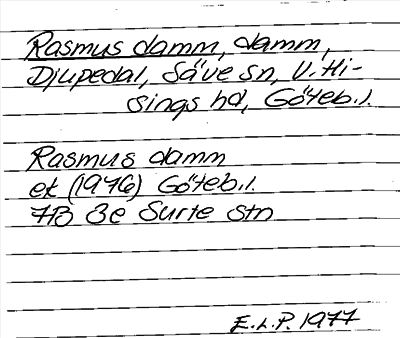 Rasmus damm, damm,
Djupedal, Säve sn, V. Hi-
sings hd, Göteb. l.
Rasmus damm
ek (1976) Göteb. l.
7B 3e Surte stn
E.L.P. 1977